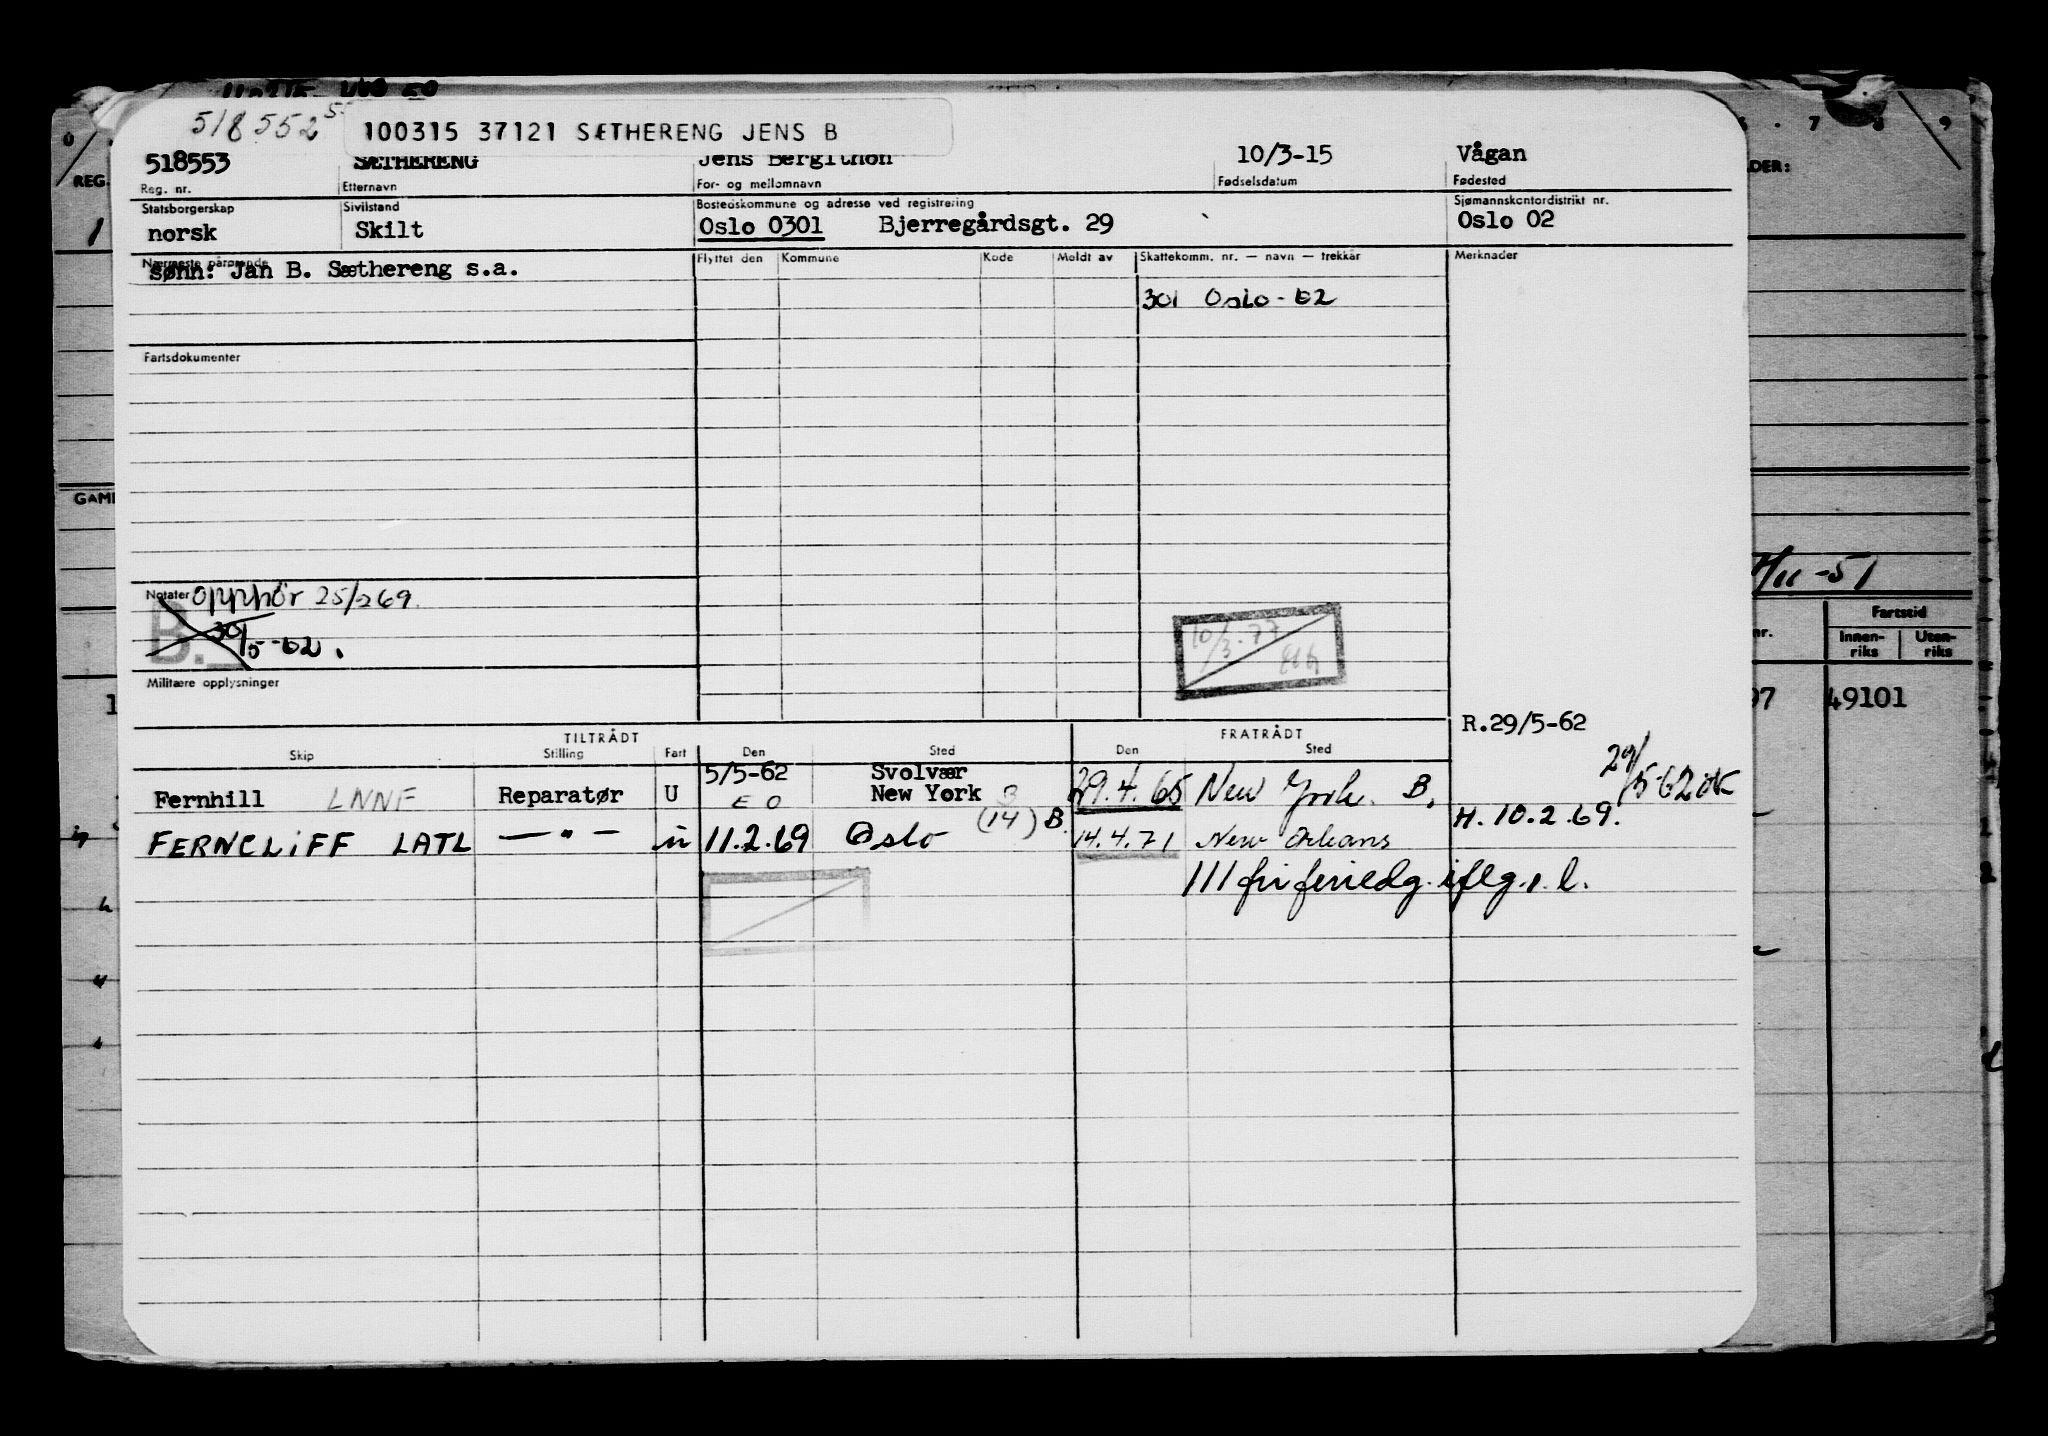 518552
100315 37121 SÆTHERENG JENS B
518553 SÆTHERENG Jens Bergithon 10/3-15 Vågan
Reg. nr. Etternavn For- og mellomnavn Fødselsdatum Fødested
REG.
Statsborgerskap Sivilstand Bostedskommune og adresse ved registrering Sjømannskontordistrikt nr.
norsk Skilt Oslo 0301 Bjerregårdsgt. 29 Oslo 02
Nærmeste pårørende Flyttet den Kommune Kode Meldt av Skattekomm. nr. — navn — trekkår Merknader
sønn: Jan B. Sæthereng s.a.
301 Oslo - 62
Fartsdokumenter
Notater opphør 25/2 69.
B.
30/5-62.
10/3-77
Militære opplysninger
4/11-51
Fartstid
Innen-riks Uten-riks
97 49101
TILTRÅDT FRATRÅDT R.29/5-62
Skip Stilling Fart Den Sted Den Sted
29/5-62 OK
5/5-62 Svolvær
Fernhill LNNF Reparatør U E O New York 3 29.4.65 New York. B.
H. 10.2.69.
FERNCLIFF LATL — " — u 11.2.69 Oslo (14) B. 14.4.71 New Orleans
111 fri feriedg. iflg. r.l.